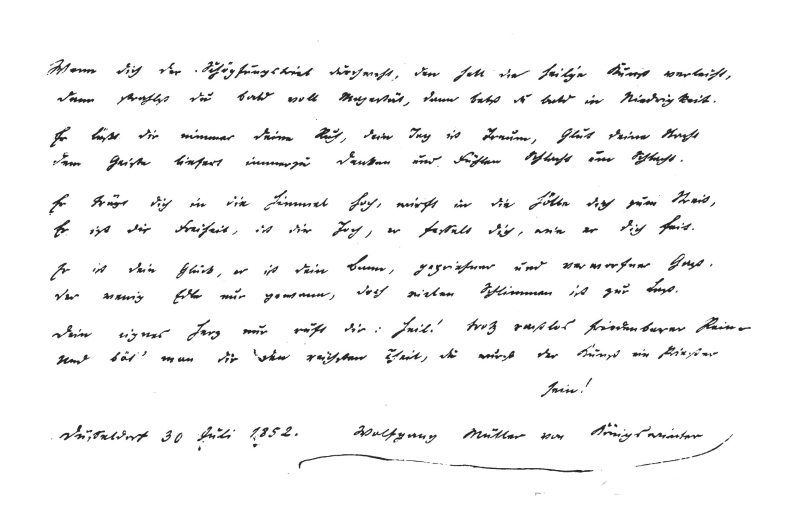 Wenn dich der Schöpfungstrieb durchweht, den hell die heil'ge Kunst verleiht,
dann strahlst du bald voll Majestät, dann bebst du bald in Niedrigkeit.
Er läßt dir nimmer deine Ruh, dein Tag ist Traum, Glut deine Nacht
dem Geiste liefert immerzu Denken und Fühlen Schlacht um Schlacht.
Er trägt dich in die Himmel hoch, wirft in die Hölle dich zum Streit,
Er ist dir Freiheit, ist dir Joch, er fesselt dich, wie er dich feit.
Er ist dein Glück, er ist dein Bann, gepriesner und verworfner Gast.
der wenig Edle nur gewann, doch vielen Schlimmen ist zur Last.
Dein eignes Herz nur ruft dir: Heil! trotz rastlos friedenbarer Pein
Und böt' man dir den reichsten Theil, du wirst der Kunst ein Priester
sein!
Düsseldorf 30 Juli 1852. Wolfgang Müller von Königswinter